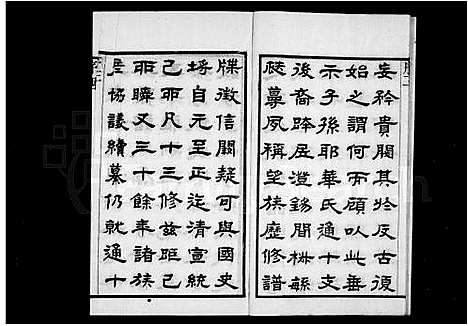 妄矜貴閥其於反古復
始之謂何而顧以此垂
示子孫耶華氏通十支
後裔跨居澄錫間緜
瓞蔓夙稱望族歷修譜
牒徵信闕疑可與國史
埒自元至正迄清宣統
己丣凡十三修茲距己
丣瞬又三十餘年諸族
協議續纂仍就通十